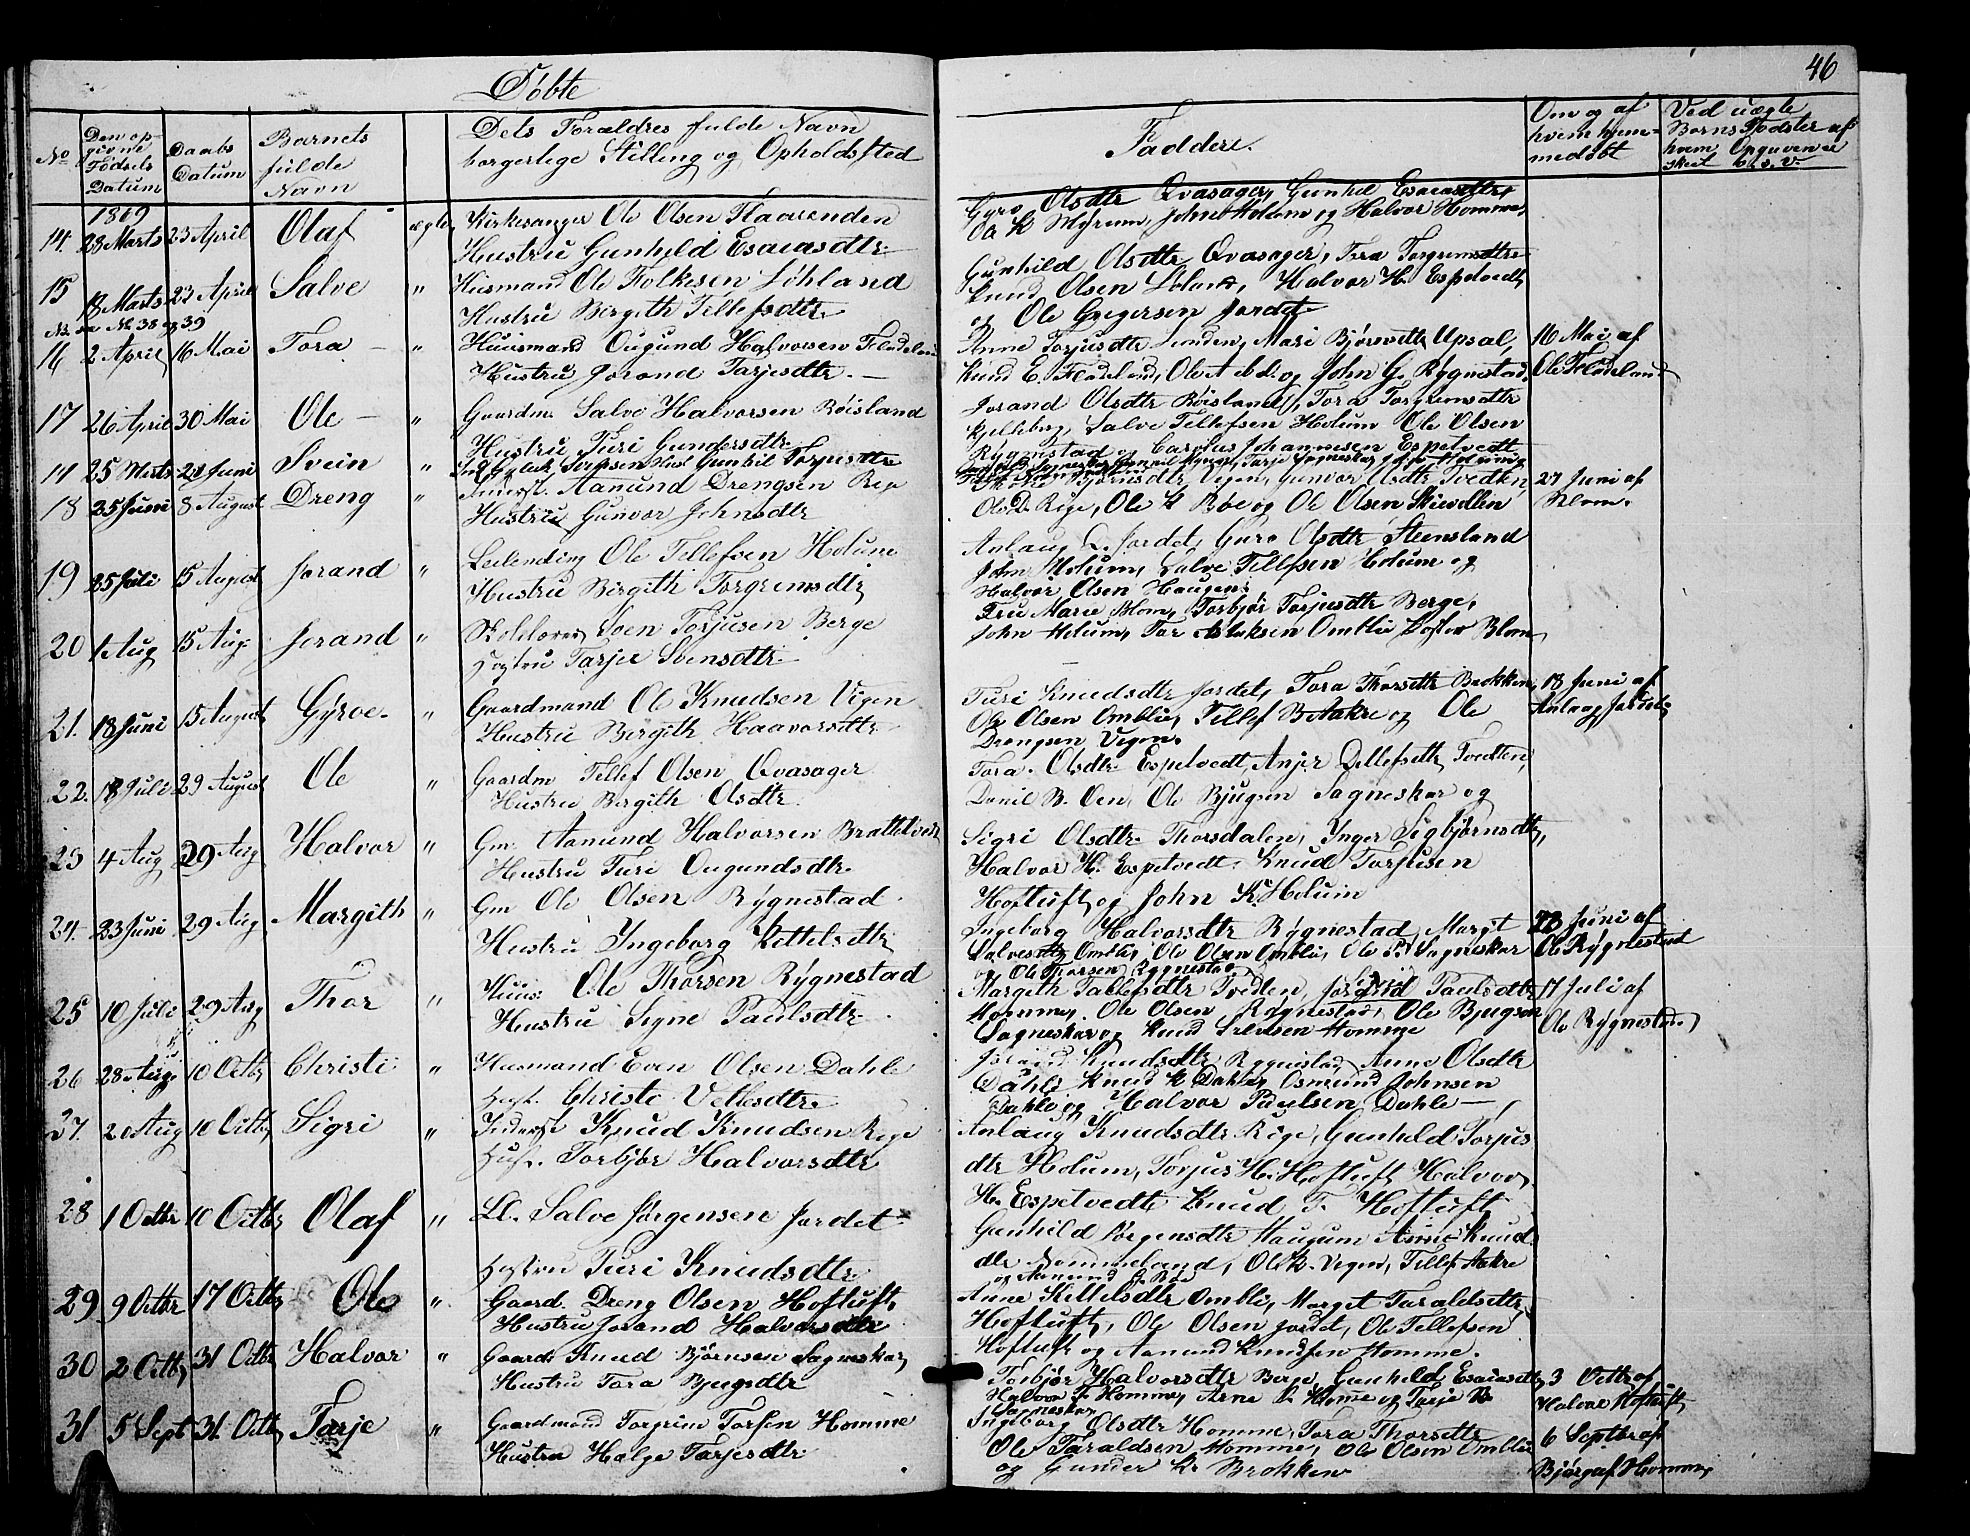 Døbte
46
No
Den op-
givne
Fødsels
Datum
Daabs
Datum
Barnets
fulde
Navn
Dets Forældres fulde Navn
borgerlige Stilling og Opholdssted
Faddere.
Om og af
hvem hjem-
medøbt
Ved uægte
Børns Fødsler af
hvem Opgaven er
skeet o. s. v.
1869
14. 28 Marts 23 April Olaf ægte Kirkesanger Ole Olsen
Hustru Gunhild Esaiasdtr.
Gyro Olsdtr Qvasager, Gunhild Esaiasdtr,
Ole K Myrum, John Holum og Halvor Homme,
15 18 Marts 23 April Salve " Huusmand Ole Folkesen Løhland
Hustru Birgith Tellefsdtr
Gunhild Olsdtr Qvasager, Tora Torgrimsdtr
Knud Olsen Løland, Halvor H. Espetvedt,
og Ole Gregersen Jordet
No 38 og 39
16 2 April 16 Mai Tora - " Huusmand Ougund Halvorsen Fladeland
Hustru Jorand Tarjesdtr. -
Anne Torjusdtr Linden, Mari Bjørnsdtr Upsal,
Knud E. Fladeland, Olav ibd. og John G. Rygnestad.
16 Mai af
Ole Fladeland
17 26 April 30 Mai Ole - " Gaardm. Salve Halvorsen Røisland
Hustru Turi Gundersdtr.
Jorand Olsdtr Røisland, Tora Torgrimsdtr
Kjelleberg, Salve Tellefsen Holum Ole Olsen
Rygnestad og Carolus Johannesen Espetvedt
11 25 Marts 24 Juni Svein " Gunhil Torjusdtr
18 25 Juni 8 August Dreng " Inderst. Aamund Drengsen Rige
Hustru Gunvor Johnsdtr
Bjørnsdtr Vegen, Gunvor Olsdtr Tvedten,
Ole D. Rige, Ole K Bøe og Ole Olsen
27 Juni af
Blom.
19 25 Juli 15 August Jorand " Leilending Ole Tellefsen Holum
Hustru Birgith Torgrimsdtr
Anlaug L. Jordet, Guro Olsdtr Steensland
John Holum, Salve Tellefsen Holum og
Halvor Olsen Haugen.
20 1 Aug 15 Aug. Jorand " Skolelærer Sven Torjusen Berge
Hustru Tarjer Svensdtr.
Fru Marie Blom, Torbjør Torjusdtr Berge,
John Holum, Tor Aslaksen Omblie Pastor Blom
21. 18 Juni 15 August Gyroe. " Gaardmand Ole Knudsen Vigen
Hustru Birgith Haavorsdtr
Turi Knudsdtr Jordet, Tora Thorsdtr Brokken,
Ole Olsen Omblie, Tellef B Aakre og Ole
Drengsen Vegen.
18 Juni af
Anlaug Jordet
22. 18 Juli 29 August Ole " Gaardm Tellef Olsen Qvasager
Hustru Birgith Olsdtr.
Tora Olsdtr Espetvedt, Anjer Tellefsdtr Tvedten,
Danil B. Oen, Ole Bjugsen Sagneskar og
23 4 Aug 29 Aug Halvor " Gm. Aamund Halvorsen Brattelid
Hustru Turi Ougundsdtr.
Sigri Olsdtr. Thorsdalen, Ynger Sigbjørnsdtr,
Halvor H. Espetvedt. Knud Torjusen
Hoftuft, og John K. Holum
24. 23 Juni 29 Aug Margith " Gm Ole Olsen Rygnestad
Hustru Ingeborg Kittelsdtr
Ingeborg Halvorsdtr Rygnestad, Margit
Salvesdtr Omblie, Ole Olsen Omblie, Ole B. Sagneskar
og Ole Thorsen Rygnestad
23 Juni af
Ole Rygnestad
25 10 Juli 29 Aug Thor " Huus: Ole Thorsen Rygnestad
Hustru Signe Paulsdtr.
Margith Tallefsdtr Tvedten, Paulsdtr
Homme, Ole Olsen Rygnestad, Ole Bjugsen
Sagneskar og Knud Svensen Homme
17 Juli af
Ole Rygnestad.
26 28 Aug. 10 Octbr Christi " Huusmand Even Olsen Dahle
Hust. Christi Vetlesdtr
Knudsdtr Rygnestad Anne Olsdtr
Dahle Knud K Dahle, Osmund Johnsen
Dahle og Halvor Paulsen Dahle
27. 20 Aug 10 Octbr Sigri " Inderst Knud Knudsen Rige
Hust. Torbjør Halvorsdtr
Anlaug Knudsdtr Rige, Gunhild Torjus
dtr Holum, Torjus H. Hoftuft Halvor
H. Espetvedt Knud T. Hoftuft
28 1 Octbr 10 Octbr Olaf " Ll. Salve Jørgensen Jordet
Hustru Turi Knudsdtr
Gunhild Jørgensdtr Haugum Anne Knud
dtr Nommeland, Ole K. Vegen, Tellef Aakre
og Aamund G. Bøe
29 9 Octbr 17 Octbr Ole " Gaard. Dreng Olsen Hoftuft,
Hustru Jorand Halvorsdtr
Anne Kittelsdtr Omblie, Marget Taraldsdtr
Hoftuft, Ole Olsen Jordet, Ole Tellefsen
Hoftuft og Aamund Knudsen Homme.
30 2 Octbr 31 Octbr Halvor " Gaard. Knud Bjørnsen Sagneskar,
Hustru Tora Bjugsdtr
Torbjør Halvorsdtr Berge, Gunhild Esaiasdtr,
Halvor T. Homme, Arne K. Homme og Tarje B
Sagneskar
3 Octbr af
Halvor Hoftuft
31 5 Sept 31. Octbr Tarje " Gaardmand Torgrim Torsen Homme
Hustru Helge Tarjesdtr.
Ingeborg Olsdtr Homme, Tora Thorsdtr
Ole Taraldsen Homme, Ole Olsen Omblie
og Gunder K. Brokken
6 Septbr af
Bjørguf Homme